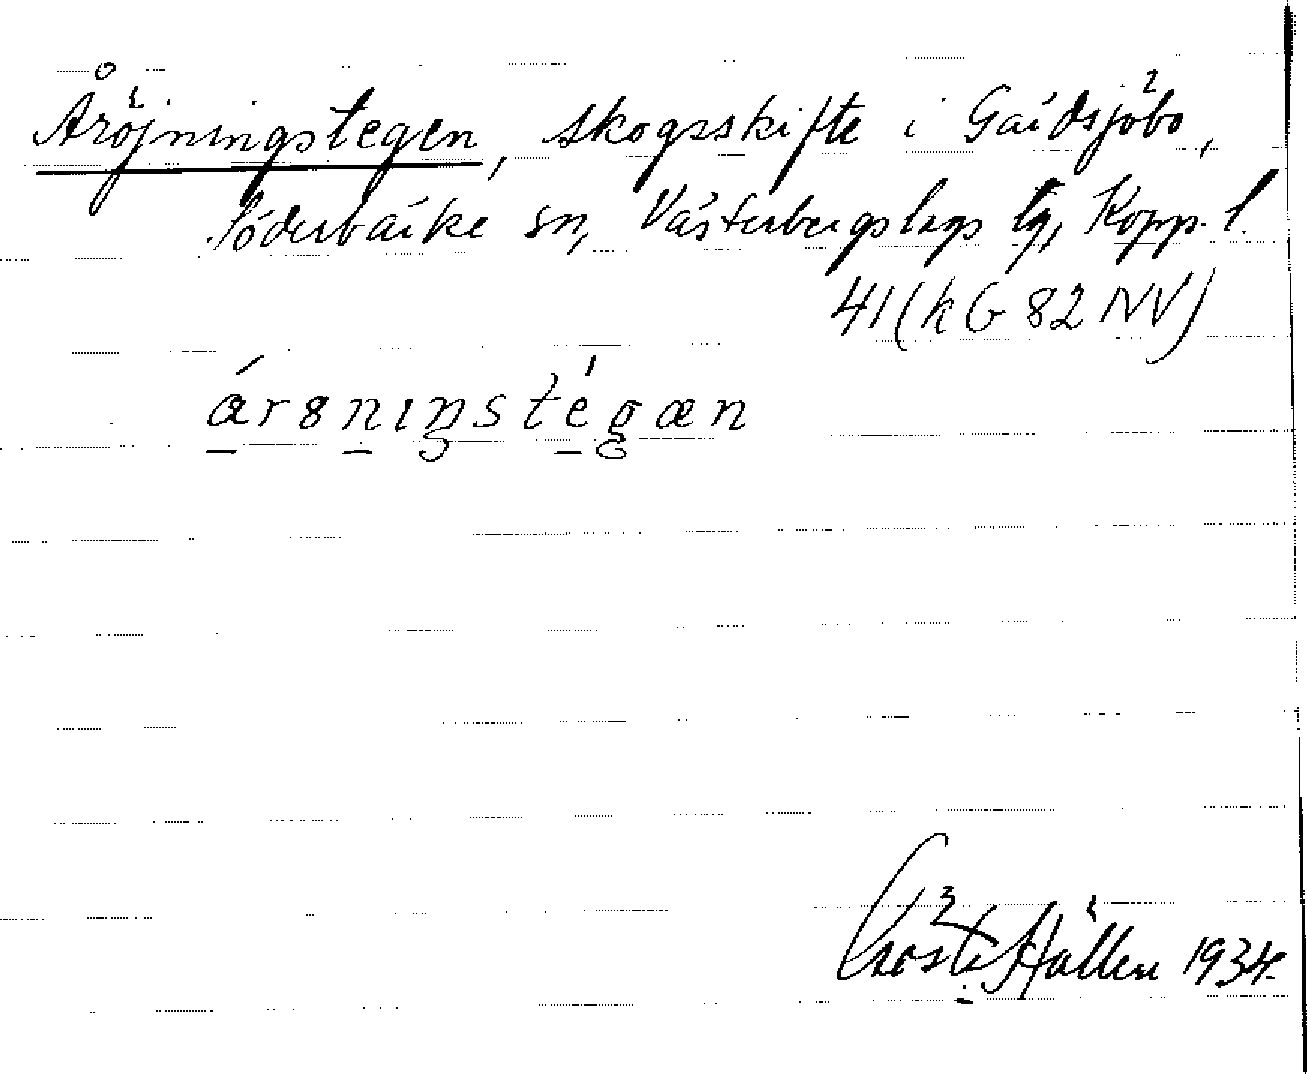 Åröjningstegen, skogsskifte i Gärdsjöbo,
Söderbärke sn, Västerbergslags tg, Kopp. l.
41 (k G 82 NV)
árȣnıŋstégæn
Gösta Hallen 1934.